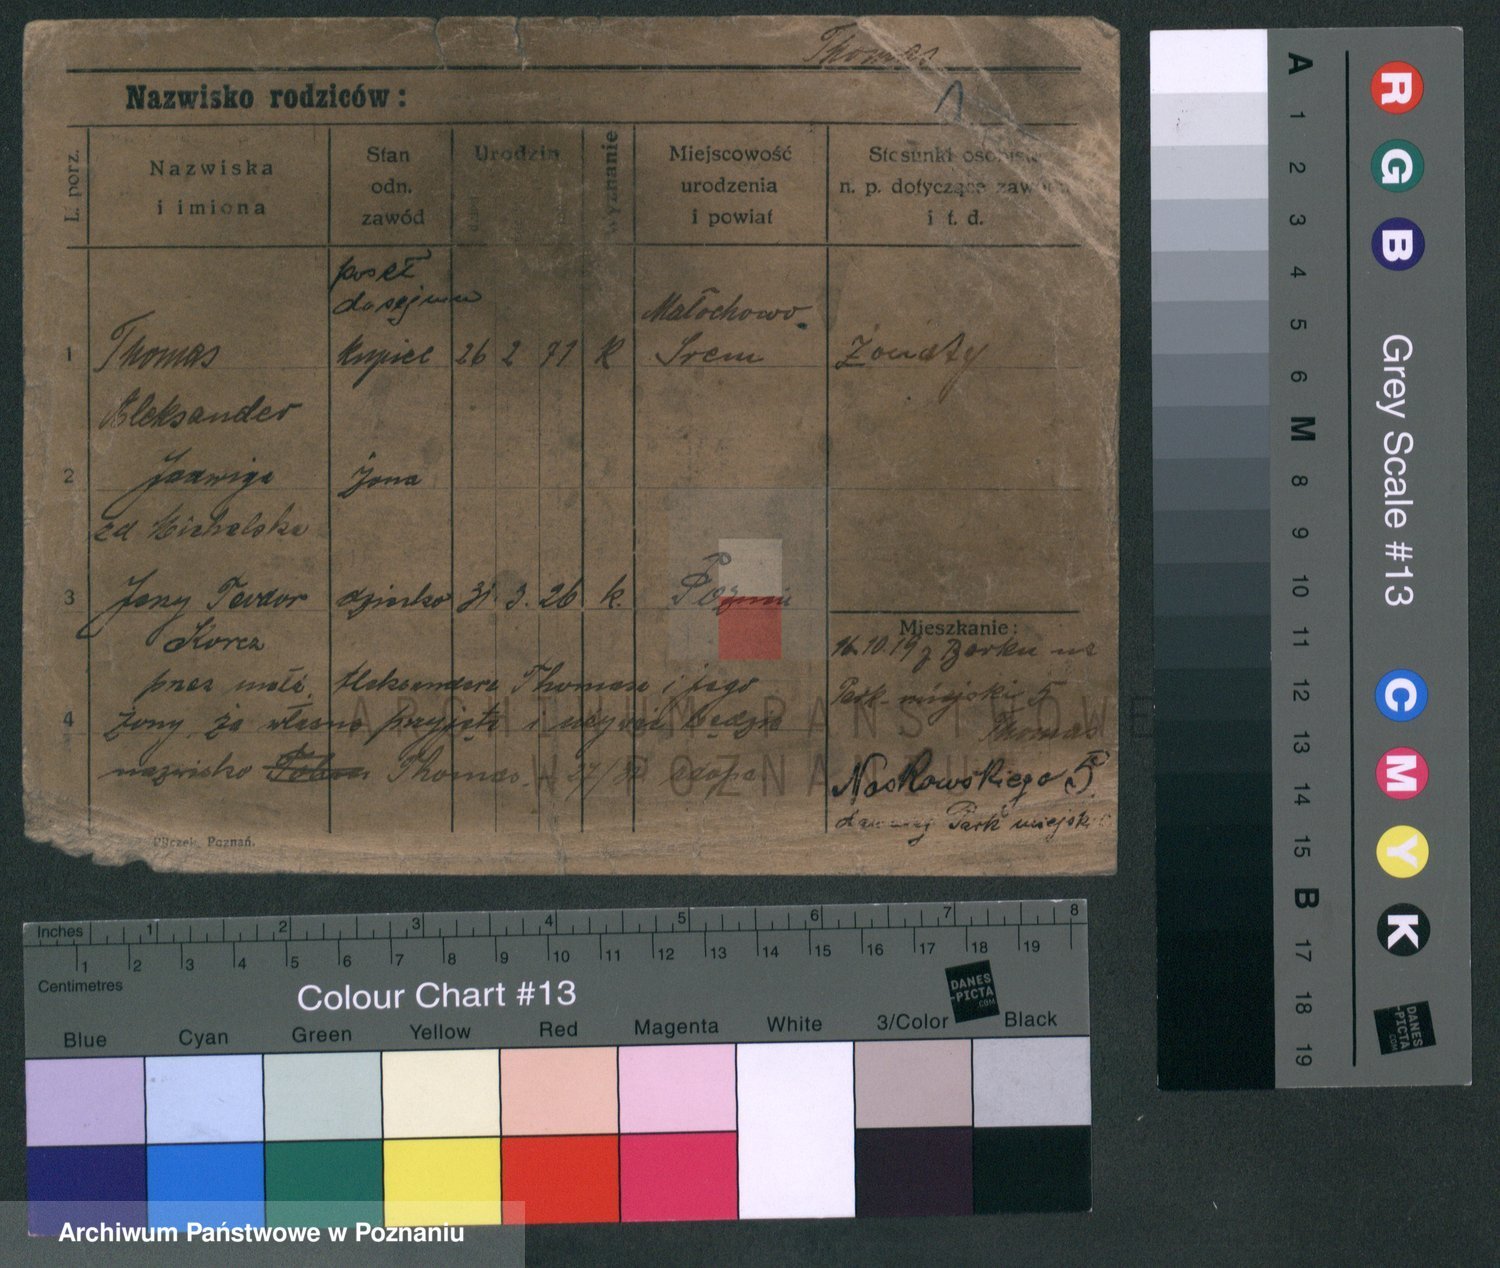 Thomas
Nazwisko rodziców:
L. porz.
Nazwiska
i imiona
Stan
odn.
zawód
Urodzin
Wyznanie
Miejscowość
urodzenia
i powiat
Stosunki osobiste
n. p. dotyczące zawodu
i t. d.
poseł
do sejmu
Małochowo
1 Thomas kupiec 26 2 71 k Śrem Żonaty
Aleksander
2 Jadwiga żona
zd Michalska
3 Jerzy Teodor dziecko 31. 3. 26 k. Poznań
Korcz
Mieszkanie:
16.10.19 z Borku na
przez małż. Aleksandra Thomasa i jego
Park miejski 5
4 żony za własne przyjęte i używać będzie
Thomas
nazwisko Thomas.
Noskowskiego 5.
dawniej Park miejski
Pilczek, Poznań.
ARCHIWUM PAŃSTWOWE
W POZNANIU
A 1 2 3 4 5 6 M 8 9 10 11 12 13 14 15 B 17 18 19
R G B
Grey Scale #13
C M Y K
DANES
-PICTA
.COM
Inches 1 2 3 4 5 6 7 8
1 2 3 4 5 6 7 8 9 10 11 12 13 14 15 16 17 18 19
Centimetres
Colour Chart #13
DANES
-PICTA
.COM
Blue Cyan Green Yellow Red Magenta White 3/Color Black
Archiwum Państwowe w Poznaniu